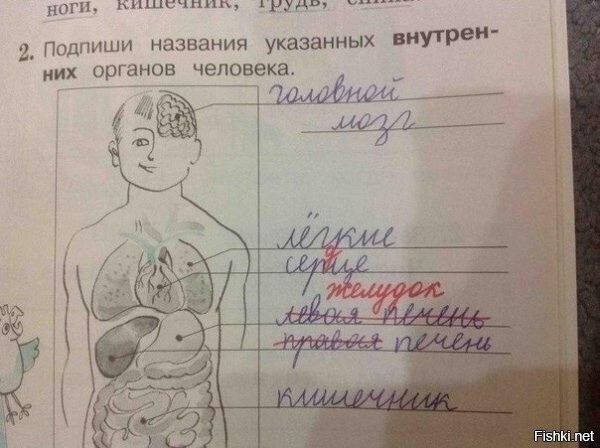 ноги, кишечник, грудь, спина
2. Подпиши названия указанных внутрен-
них органов человека.
головной
мозг
лёгкие
сердце
желудок
левая печень
правая печень
кишечник
Fishki.net